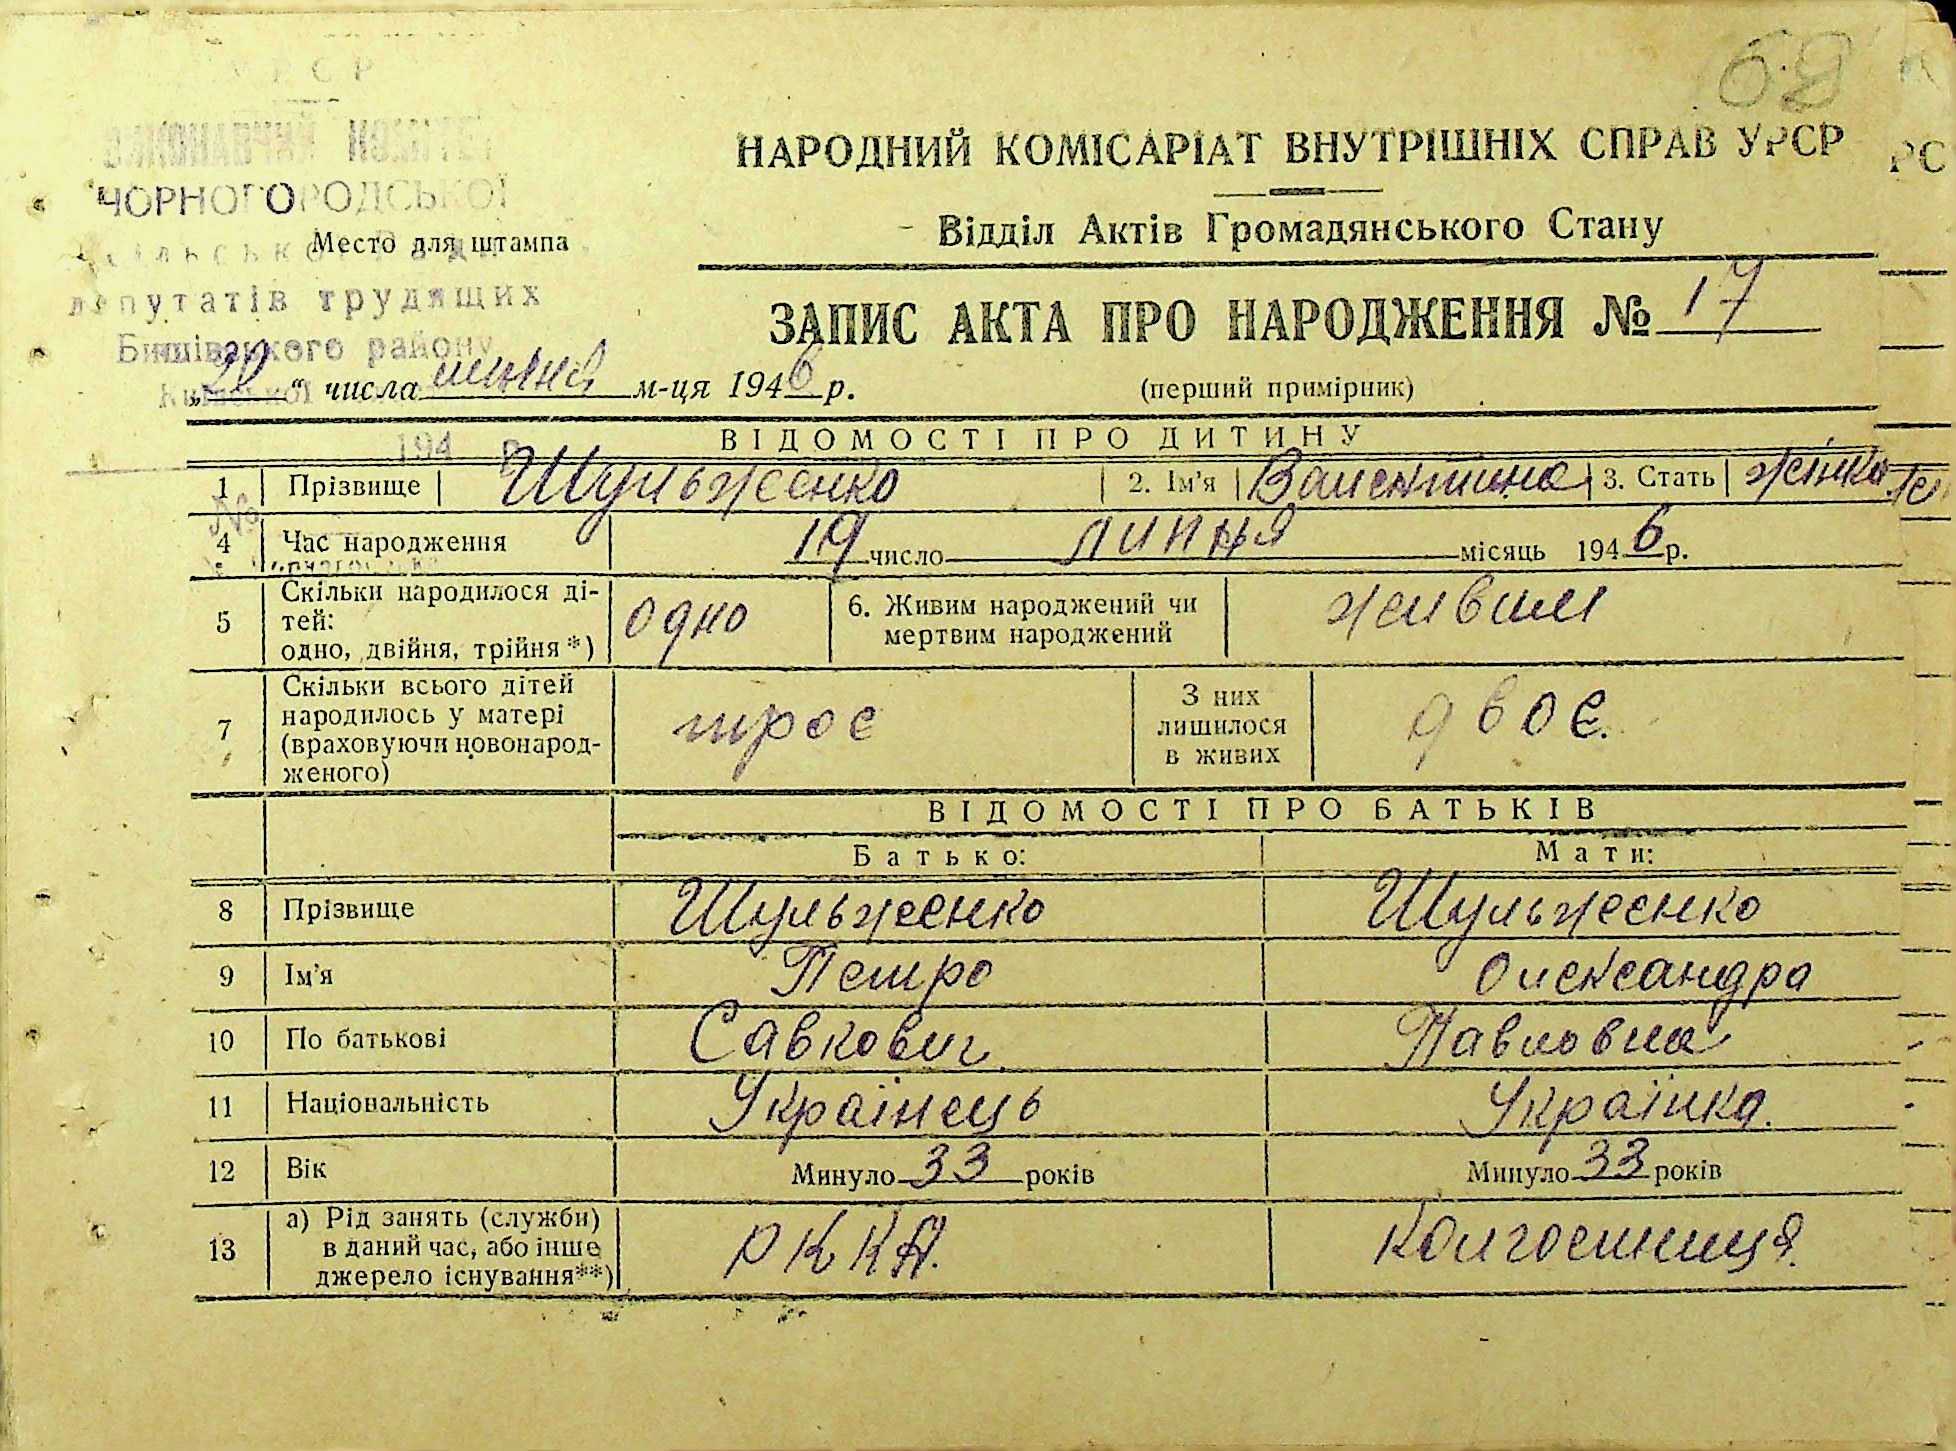 УРСР
ВИКОНАВЧИЙ КОМІТЕТ
ЧОРНОГОРОДСЬКОЇ
сільської Ради
Место для штампа
депутатів трудящих
Бишівського району
Київської
194 р.
№
69
НАРОДНИЙ КОМІСАРІАТ ВНУТРІШНІХ СПРАВ УРСР
Відділ Актів Громадянського Стану
ЗАПИС АКТА ПРО НАРОДЖЕННЯ № 17
„20“ числа июня м-ця 1946 р. (перший примірник)
ВІДОМОСТІ ПРО ДИТИНУ
1 Прізвище Шульженко 2. Ім'я Валентина 3. Стать жінка
4 Час народження 19 число липня місяць 1946 р.
5 Скільки народилося ді-
тей:
одно, двійня, трійня *) одно 6. Живим народжений чи
мертвим народжений живим
7 Скільки всього дітей
народилось у матері
(враховуючи новонарод-
женого) троє З них
лишилося
в живих двоє.
ВІДОМОСТІ ПРО БАТЬКІВ
Батько: Мати:
8 Прізвище Шульженко Шульженко
9 Ім'я Петро Олександра
10 По батькові Савкович Павловна
11 Національність Українець Українка.
12 Вік Минуло 33 років Минуло 33 років
13 а) Рід занять (служби)
в даний час, або інше
джерело існування**) РККА. Колгоспниця.